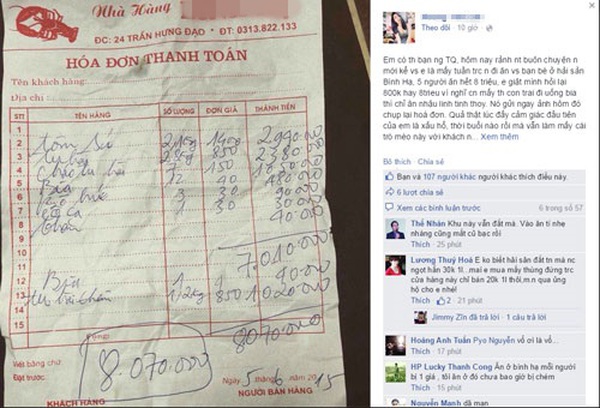 Nhà Hàng
ĐC: 24 TRẦN HƯNG ĐẠO - ĐT: 0313.822.133
HÓA ĐƠN THANH TOÁN
Tên khách hàng:
Địa chỉ:
STT TÊN HÀNG SỐ LƯỢNG ĐƠN GIÁ THÀNH TIỀN
1
2 tôm sú
3 2 380 000
4 7 150
5 Bia 12 40 480 000
6 3 30 90 000
7 1 30
8 40 000
9
10 7.010.000
11
12 Bia 1 90.000
13 1,2kg 850 1 020 000
14
15 8070.000
Cộng:
8.070.000
Viết bằng chữ:
Đặt trước:
Ngày 5 tháng 6 năm 2015
KHÁCH HÀNG NGƯỜI BÁN HÀNG
Theo dõi · 10 giờ ·
Em có th bạn ng TQ, hôm nay rảnh nt buôn chuyện n
mới kể vs e là mấy tuần trc n đi ăn vs bạn bè ở hải sản
Bình Hạ, 5 người ăn hết 8 triệu, e giật mình hỏi lại
800k hay 8trieu vì nghĩ cn mấy th con trai đi uống bia
thì chỉ ăn nhậu linh tinh thoy. Nó gửi ngay ảnh hôm đó
chụp lại hoá đơn. Quả thật lúc đấy cảm giác đầu tiên
của em là xấu hổ, thời buổi nào rồi mà vẫn làm mấy cái
trò mèo này với khách n... Xem thêm
Bỏ thích · Chia sẻ
Bạn và 107 người khác người khác thích điều này.
6 lượt chia sẻ
Xem các bình luận trước 6 trong số 57
Thế Nhân Khu này vẫn đắt mà. Vào ăn tí nhẹ
nhàng cũng mất cũ bạc rồi
Thích · 25 phút
Lương Thuý Hoá E ko biết hải sản đắt tn mà nc
ngọt hẳn 30k 1l...mai e mua mấy thùng đứng trc
cửa hàng này chỉ bán 20k 1l thôi,m.n qua ủng
hộ cho e nhé!
Thích · 2 · 21 phút
Jimmy Zin đã trả lời · 1 câu trả lời
Hoàng Anh Tuân Pyo Nguyễn vỏ ơi là vỏ...
Thích · 17 phút
HP Lucky Thanh Cong Ăn ở bình hạ mỗi người
bị 1 giá , tôi ăn ở đó chưa bao giờ bị chém
Thích · 15 phút
Nguyễn Mạnh dã man